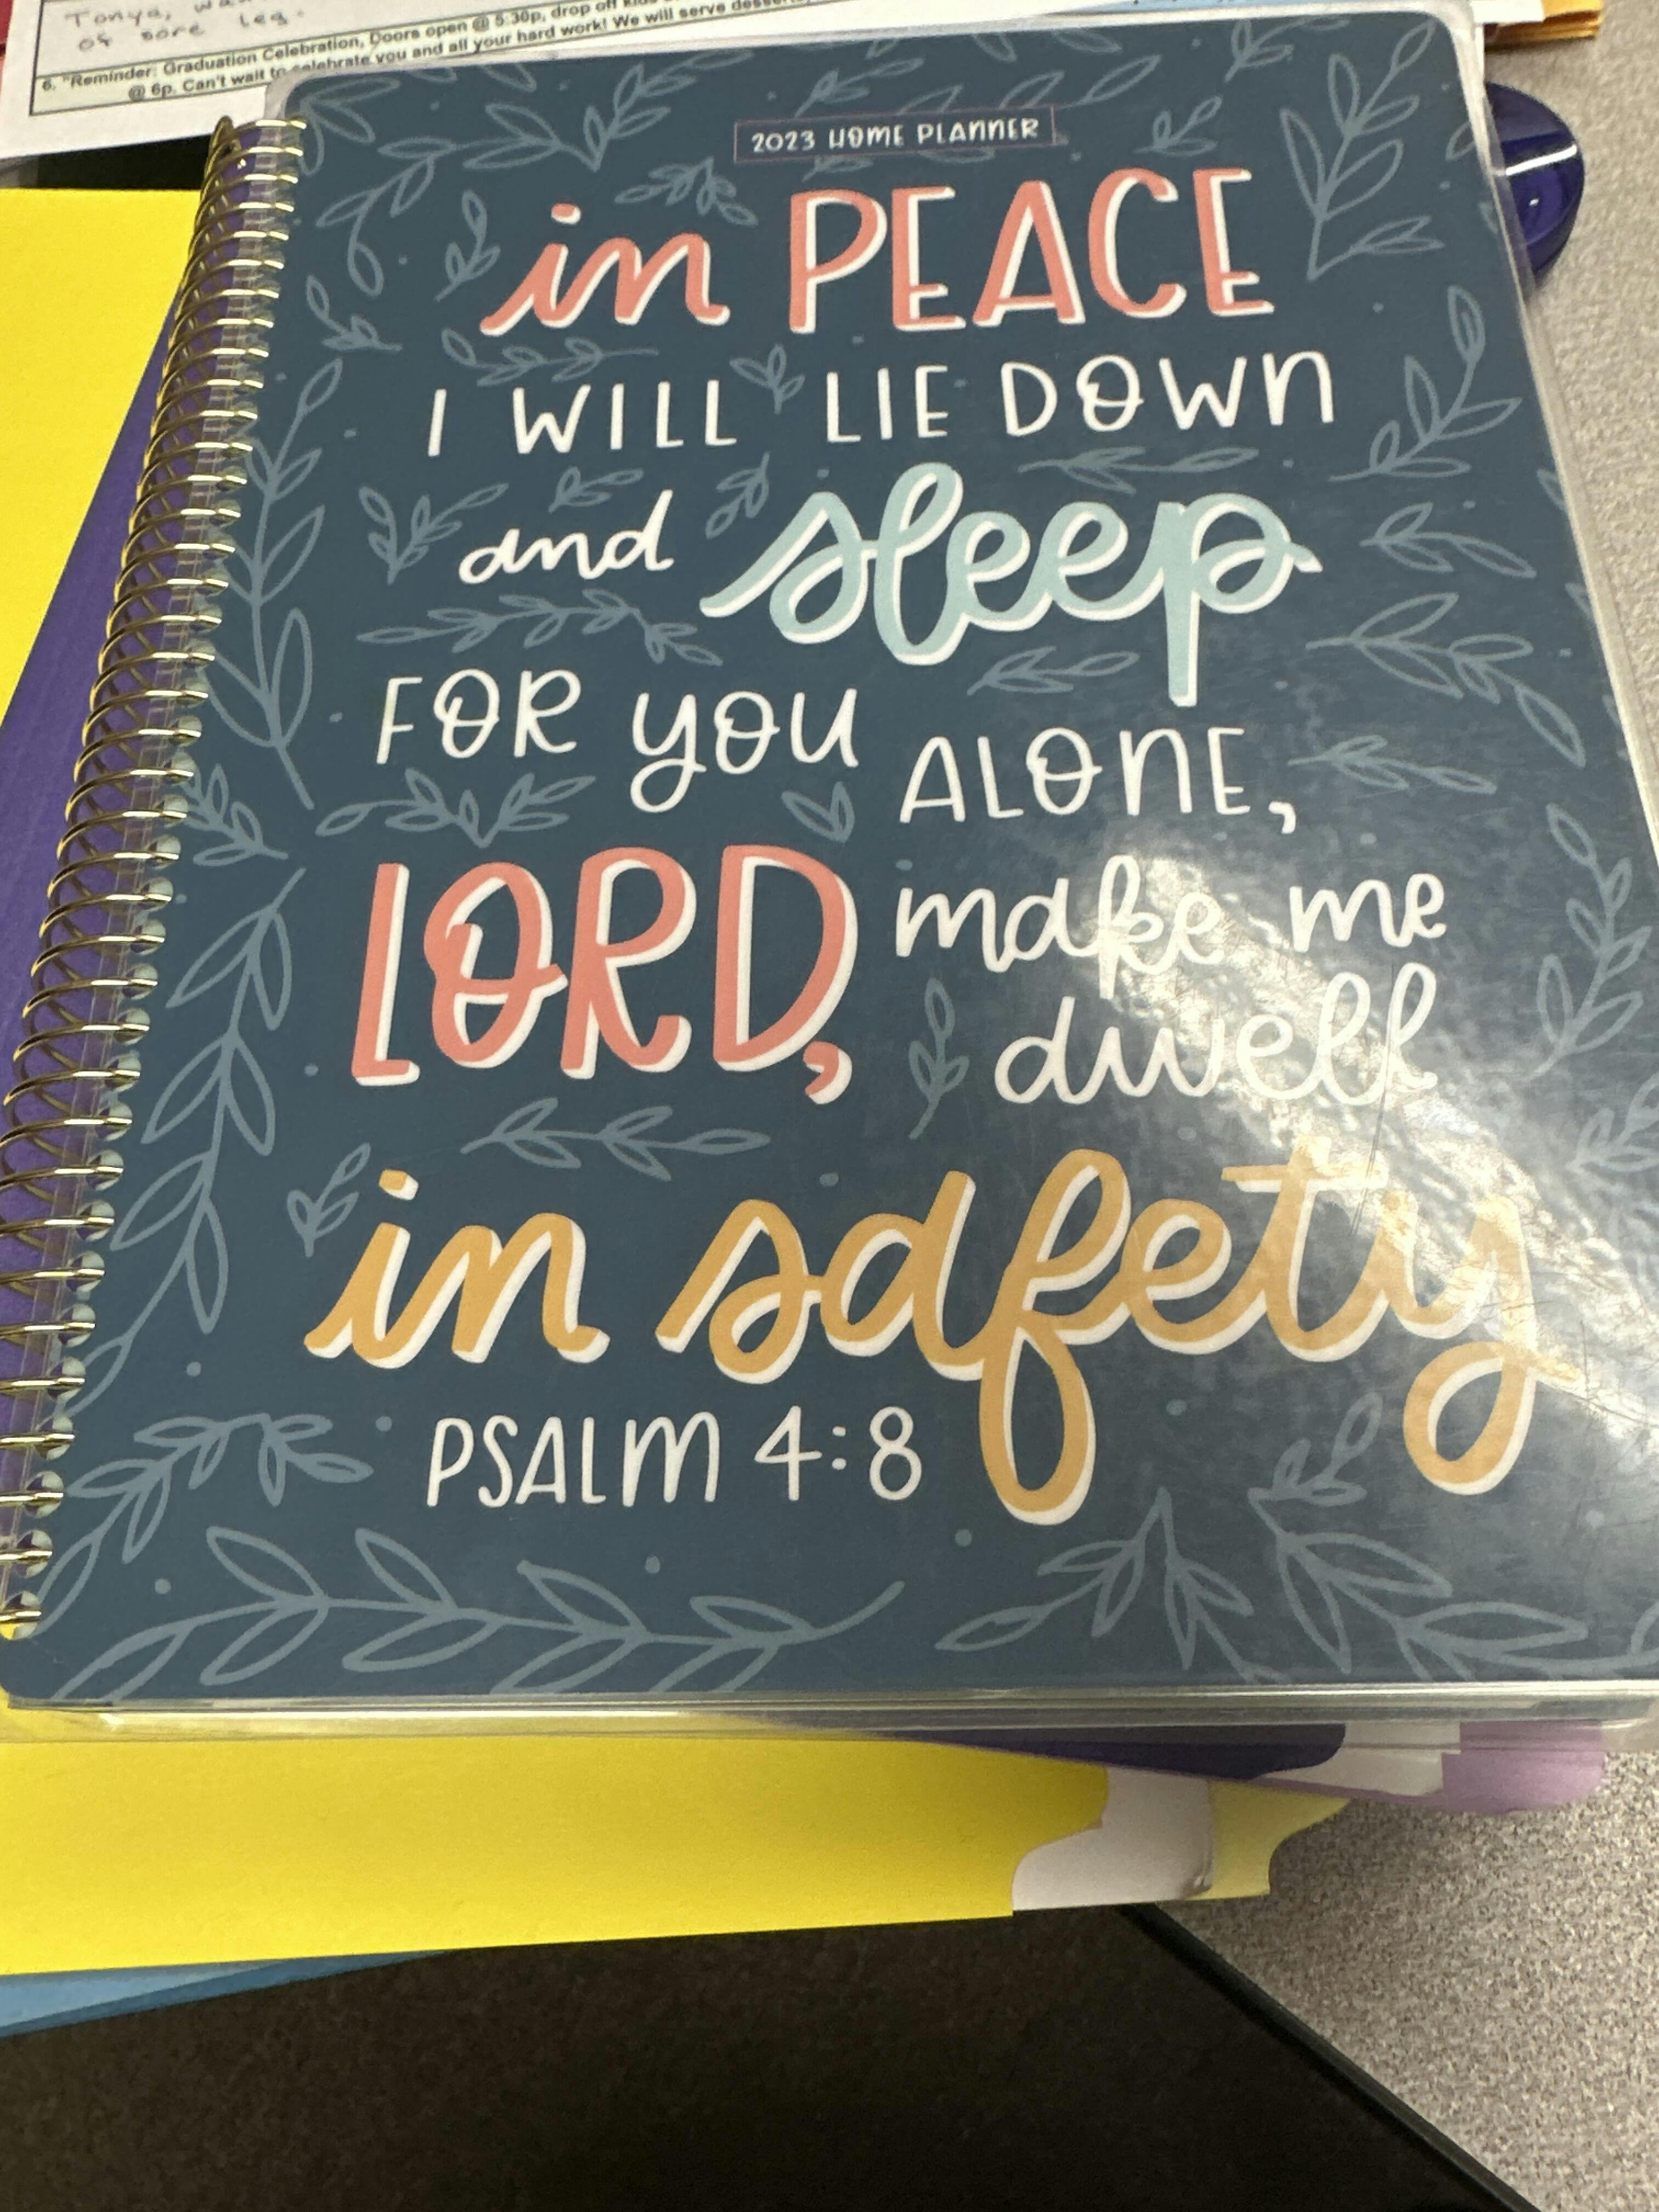 Tonya,
of sore leg.
6. "Reminder: Graduation Celebration, Doors open @ 5:30p, drop off
@ 6p. Can't wait to celebrate you and all your hard work! We will serve
2023 HOME PLANNER
in PEACE
I WILL LIE DOWN
and sleep
FOR YOU ALONE,
LORD, make me
dwell
in safety
PSALM 4:8